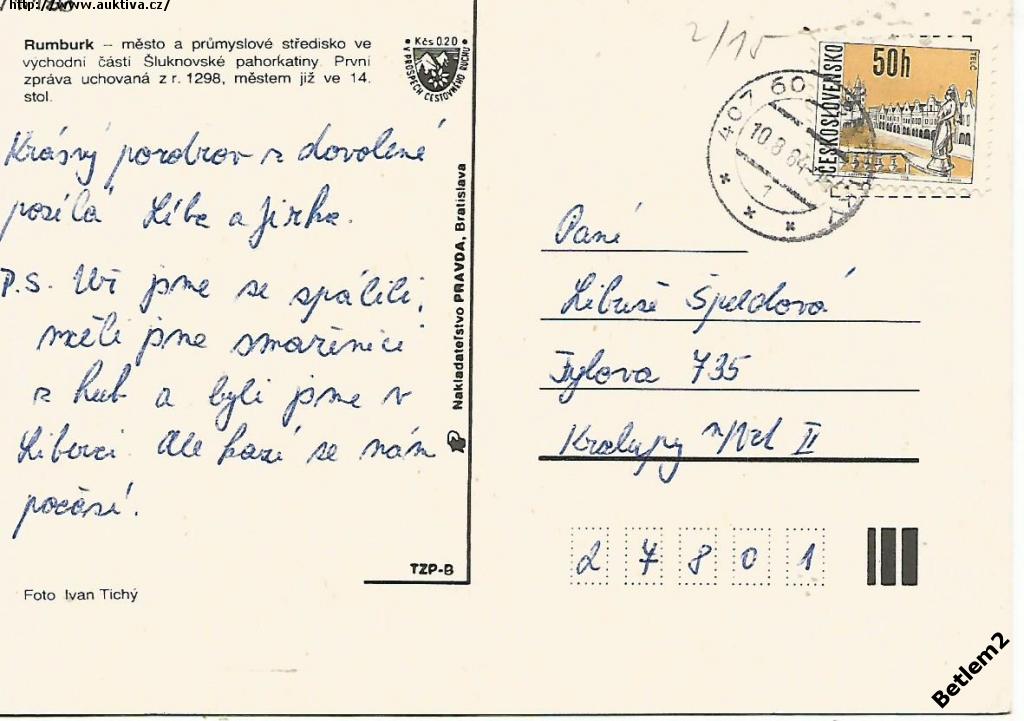 http://www.auktiva.cz/
Rumburk – město a průmyslové středisko ve
východní části Šluknovské pahorkatiny. První
zpráva uchovaná z r. 1298, městem již ve 14.
stol.
Kčs 0,20
V PROSPĚCH CESTOVNÉHO RUCHU
Krásný pozdrav z dovolené
posílá Líba a Jirka.
P.S. Už jsme se spálili,
měli jsme smaženici
z hub a byli jsme v
Liberci. Ale kazí se nám
počasí!
Nakladatelstvo PRAVDA, Bratislava
TZP-B
Foto Ivan Tichý
2/15
407 60
10.8.84
1
ČESKOSLOVENSKO
50h
TELČ
Paní
Libuše Špeldová
Tylova 735
Kralupy n/Vlt II
27801
Betlem2